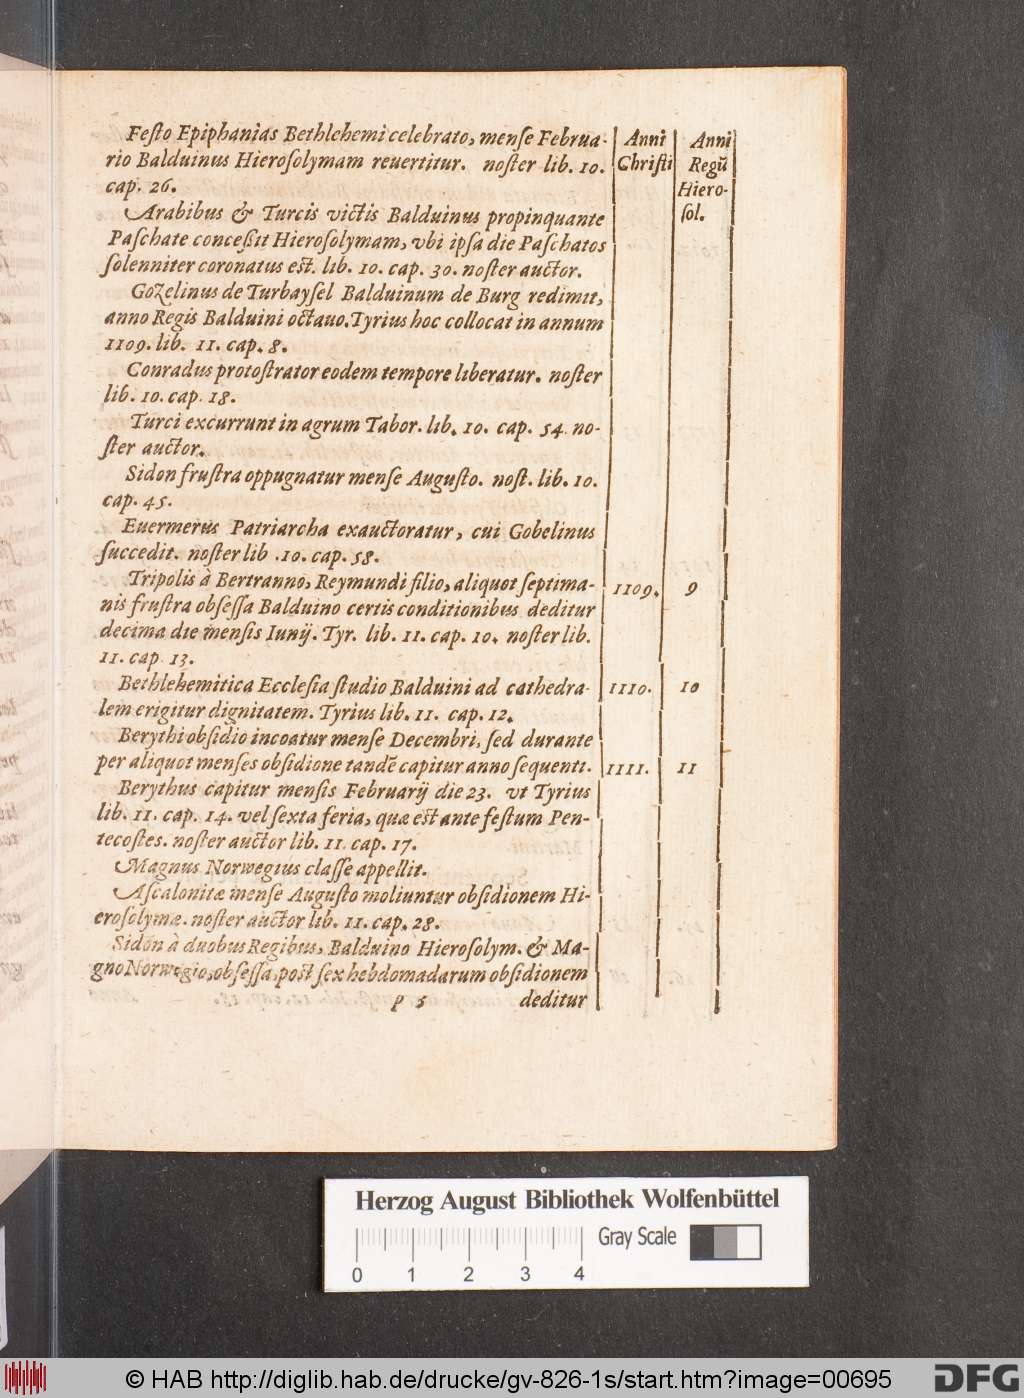 Festo Epiphanias Bethlehemi celebrato, mense Februa-
rio Balduinus Hierosolymam reuertitur. noster lib. 10.
cap. 26.
Arabibus & Turcis victis Balduinus propinquante
Paschate conceßit Hierosolymam, vbi ipsa die Paschatos
solenniter coronatus est. lib. 10. cap. 30. noster auctor.
Gozelinus de Turbaysel Balduinum de Burg redimit,
anno Regis Balduini octauo. Tyrius hoc collocat in annum
1109. lib. 11. cap. 8.
Conradus protostrator eodem tempore liberatur. noster
lib. 10. cap. 18.
Turci excurrunt in agrum Tabor. lib. 10. cap. 54. no-
ster auctor.
Sidon frustra oppugnatur mense Augusto. nost. lib. 10.
cap. 45.
Euermerus Patriarcha exauctoratur, cui Gobelinus
succedit. noster lib .10. cap. 58.
Tripolis à Bertranno, Reymundi filio, aliquot septima-
nis frustra obsessa Balduino certis conditionibus deditur
decima die mensis Iunij. Tyr. lib. 11. cap. 10. noster lib.
11. cap. 13.
Bethlehemitica Ecclesia studio Balduini ad cathedra-
lem erigitur dignitatem. Tyrius lib. 11. cap. 12.
Berythi obsidio incoatur mense Decembri, sed durante
per aliquot menses obsidione tandē capitur anno sequenti.
Berythus capitur mensis Februarij die 23. vt Tyrius
lib. 11. cap. 14. vel sexta feria, quæ est ante festum Pen-
tecostes. noster auctor lib. 11. cap. 17.
Magnus Norwegius classe appellit.
Ascalonitæ mense Augusto moliuntur obsidionem Hi-
erosolymæ. noster auctor lib. 11. cap. 28.
Sidon à duobus Regibus, Balduino Hierosolym. & Ma-
gno Norwegio, obsessa, post sex hebdomadarum obsidionem
p 5 deditur
Anni
Christi
1109.
1110.
1111.
Anni
Regū
Hiero-
sol.
9
10
11
Herzog August Bibliothek Wolfenbüttel
Gray Scale
0 1 2 3 4
© HAB http://diglib.hab.de/drucke/gv-826-1s/start.htm?image=00695
DFG